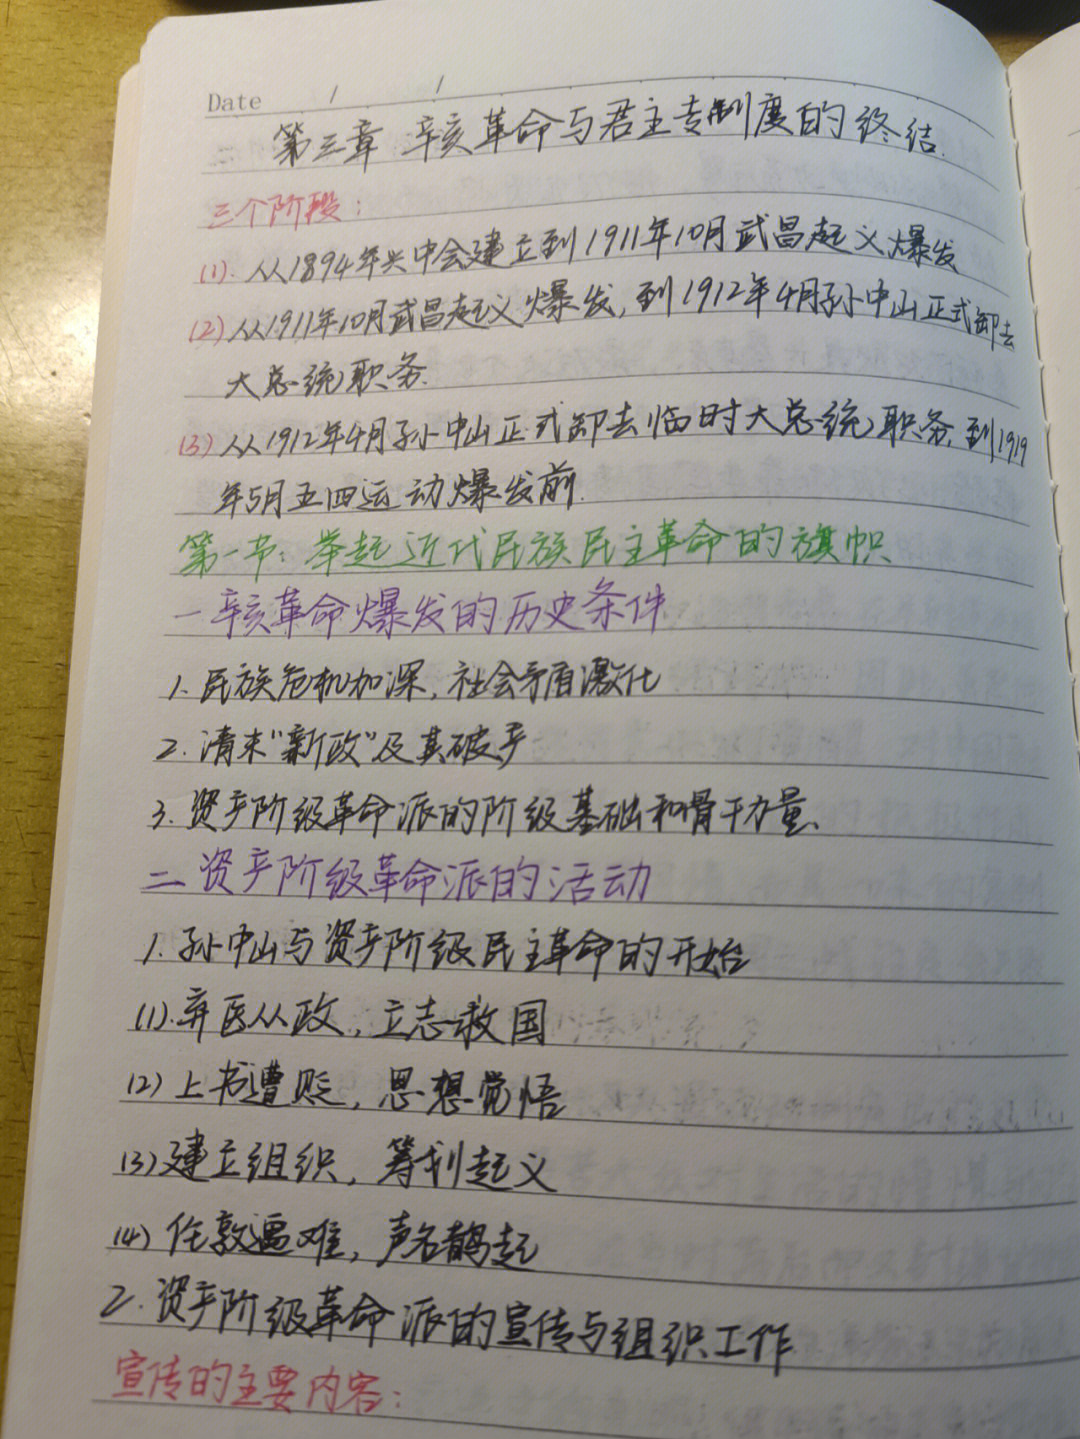 Date / /
第三章 辛亥革命与君主专制度的终结.
三个阶段:
(1). 从1894年兴中会建立到1911年10月武昌起义爆发
(2) 从1911年10月武昌起义爆发, 到1912年4月孙中山正式卸去
大总统职务.
(3) 从1912年4月孙中山正式卸去临时大总统职务, 到1919
年5月五四运动爆发前.
第一节: 举起近代民族民主革命的旗帜
一 辛亥革命爆发的历史条件
1. 民族危机加深, 社会矛盾激化
2. 清末“新政”及其破产
3. 资产阶级革命派的阶级基础和骨干力量、
二 资产阶级革命派的活动
1. 孙中山与资产阶级民主革命的开始
(1). 弃医从政, 立志救国
(2) 上书遭贬, 思想觉悟
(3) 建立组织, 筹划起义
(4) 伦敦遇难, 声名鹊起
2. 资产阶级革命派的宣传与组织工作
宣传的主要内容: